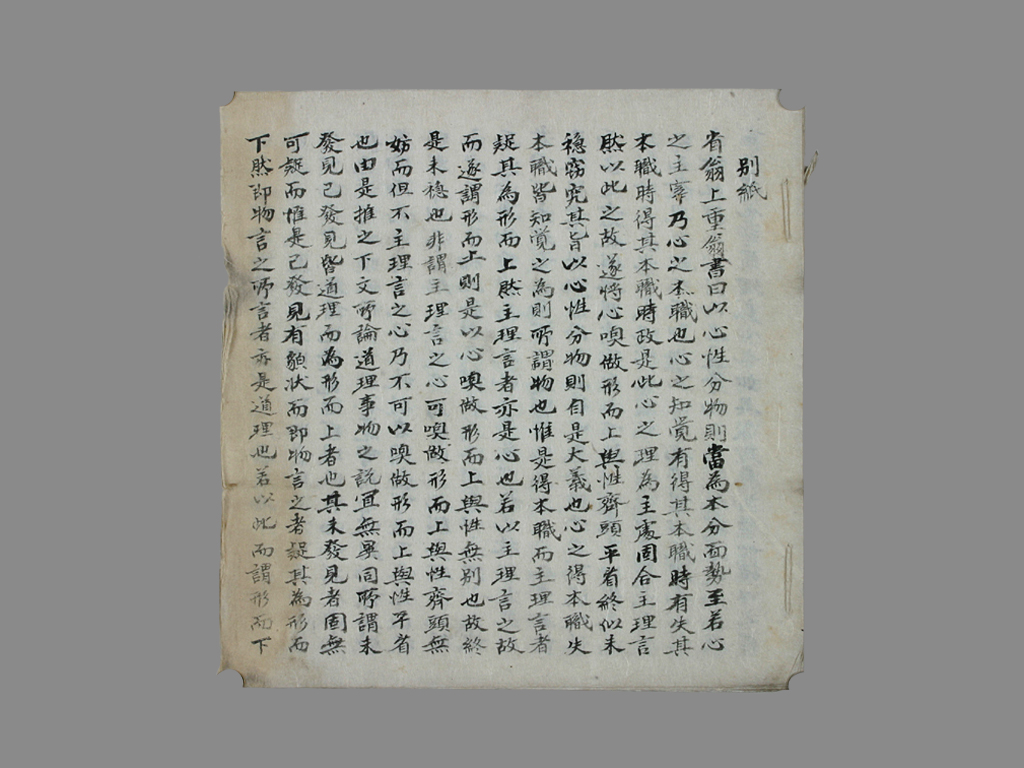 別紙
省翁上重翁書曰以心性分物則當為本分面勢至若心
之主宰乃心之本職也心之知覺有得其本職時有失其
本職時得其本職時政是此心之理為主處固合主理言
然以此之故遂將心喚做形而上與性齊頭平看終似未
穩竊究其旨以心性分物則自是大義也心之得本職失
本職皆知覺之為則所謂物也惟是得本職而主理言者
疑其為形而上然主理言者亦是心也若以主理言之故
而遂謂形而上則是以心喚做形而上與性無別也故終
是未穩也非謂主理言之心可喚做形而上與性齊頭無
妨而但不主理言之心乃不可以喚做形而上與性不省
也由是推之下文所論道理事物之說宜無異同所謂未
發見已發見皆道理而為形而上者也其未發見者固無
可疑而惟是已發見有貌狀而即物言之者疑其為形而
下然即物言之所言者亦是道理也若以此而謂形而下